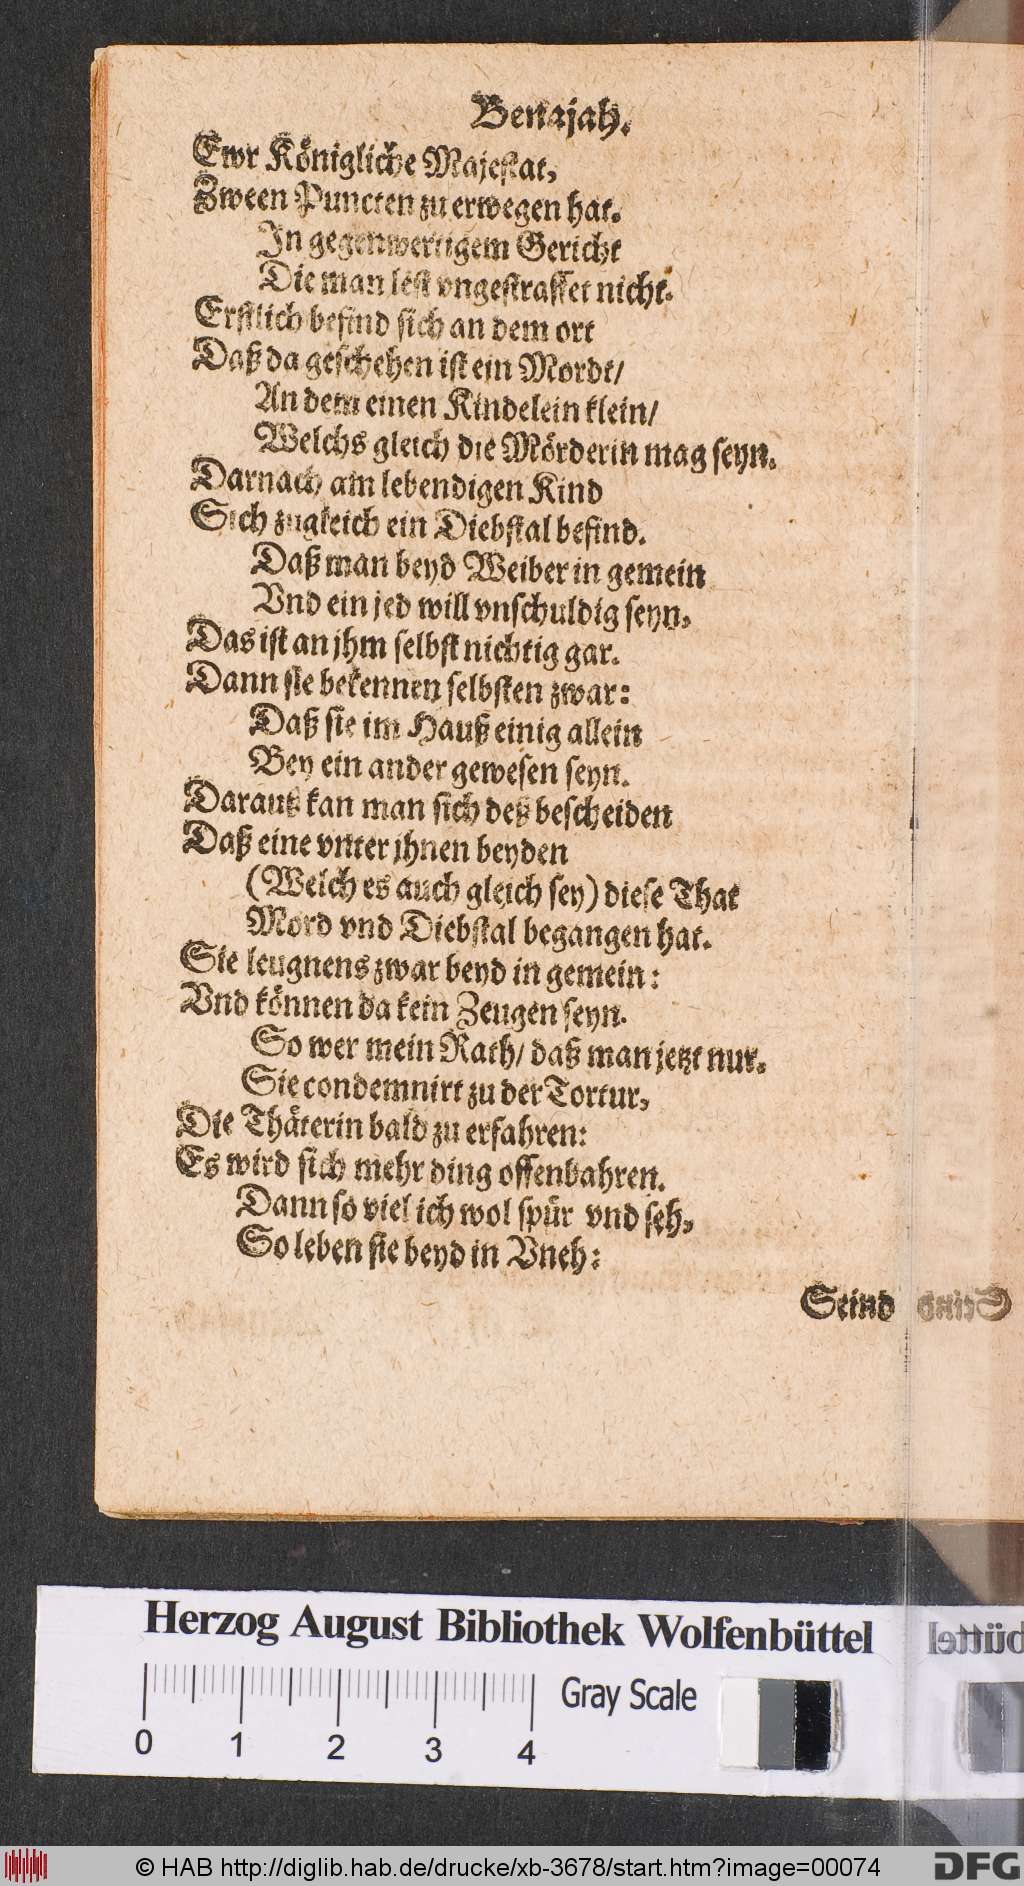 Benajah.
Ewr Königliche Majestat,
Zween Puncten zu erwegen hat.
In gegenwertigem Gericht
Die man lest vngestraffet nicht.
Erstlich befind sich an dem ort
Daß da geschehen ist ein Mordt/
An dem einen Kindelein klein/
Welchs gleich die Mörderin mag seyn.
Darnach am lebendigen Kind
Sich zugleich ein Diebstal befind.
Daß man beyd Weiber in gemein
Vnd ein jed will vnschuldig seyn,
Das ist an jhm selbst nichtig gar.
Dann sie bekennen selbsten zwar:
Daß sie im Hauß einig allein
Bey ein ander gewesen seyn.
Darauß kan man sich deß bescheiden
Daß eine vnter jhnen beyden
(Welch es auch gleich sey) diese That
Mord vnd Diebstal begangen hat.
Sie leugnens zwar beyd in gemein:
Vnd können da kein Zeugen seyn.
So wer mein Rath/ daß man jetzt nur.
Sie condemnirt zu der Tortur,
Die Thäterin bald zu erfahren:
Es wird sich mehr ding offenbahren.
Dann so viel ich wol spür vnd seh,
So leben sie beyd in Vneh:
Seind
Herzog August Bibliothek Wolfenbüttel
0 1 2 3 4
Gray Scale
© HAB http://diglib.hab.de/drucke/xb-3678/start.htm?image=00074
DFG